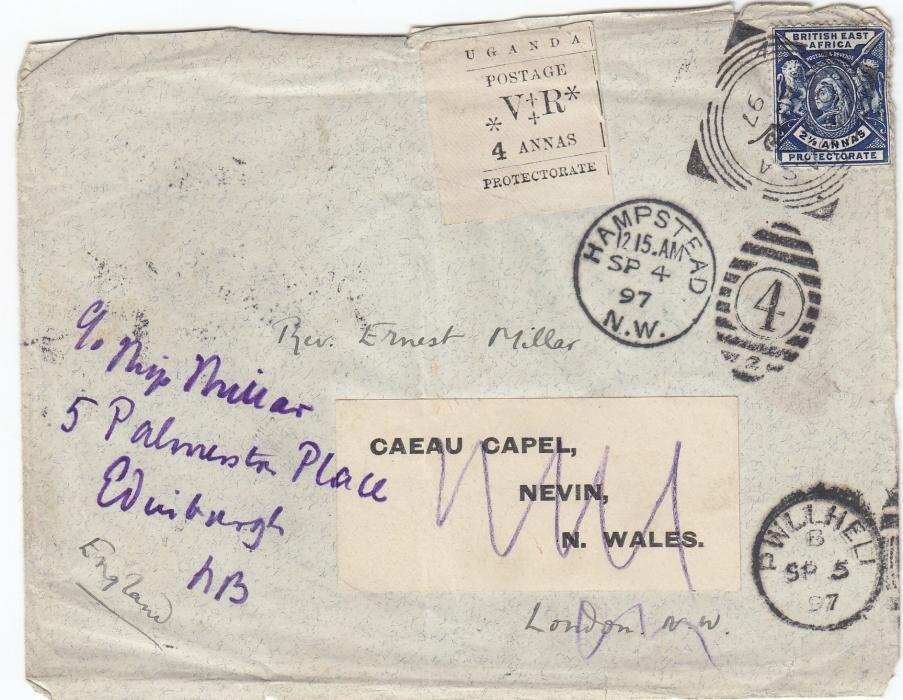 UGANDA
POSTAGE
*V‡R*
4 ANNAS
PROTECTORATE
BRITISH EAST
AFRICA
POSTAGE & REVENUE
2½ ANNAS
PROTECTORATE
97
HAMPSTEAD
12 15.AM
SP 4
97
N.W.
4
2
Rev. Ernest Millar
c/o Miss Millar
5 Palmerston Place
Edinburgh
NB
England
CAEAU CAPEL,
NEVIN,
N. WALES.
London. N.W.
PWLLHELI
B
SP 5
97